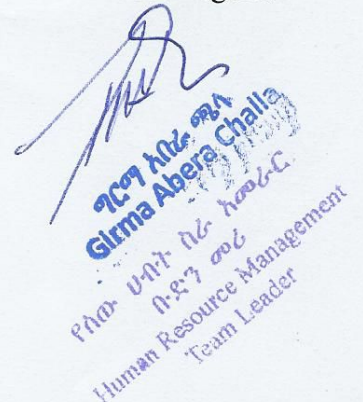 ግርማ አበራ ጫላ
Girma Abera Challa
የሰው ሀብት ስራ አመራር
ቡድን መሪ
Human Resource Management
Team Leader